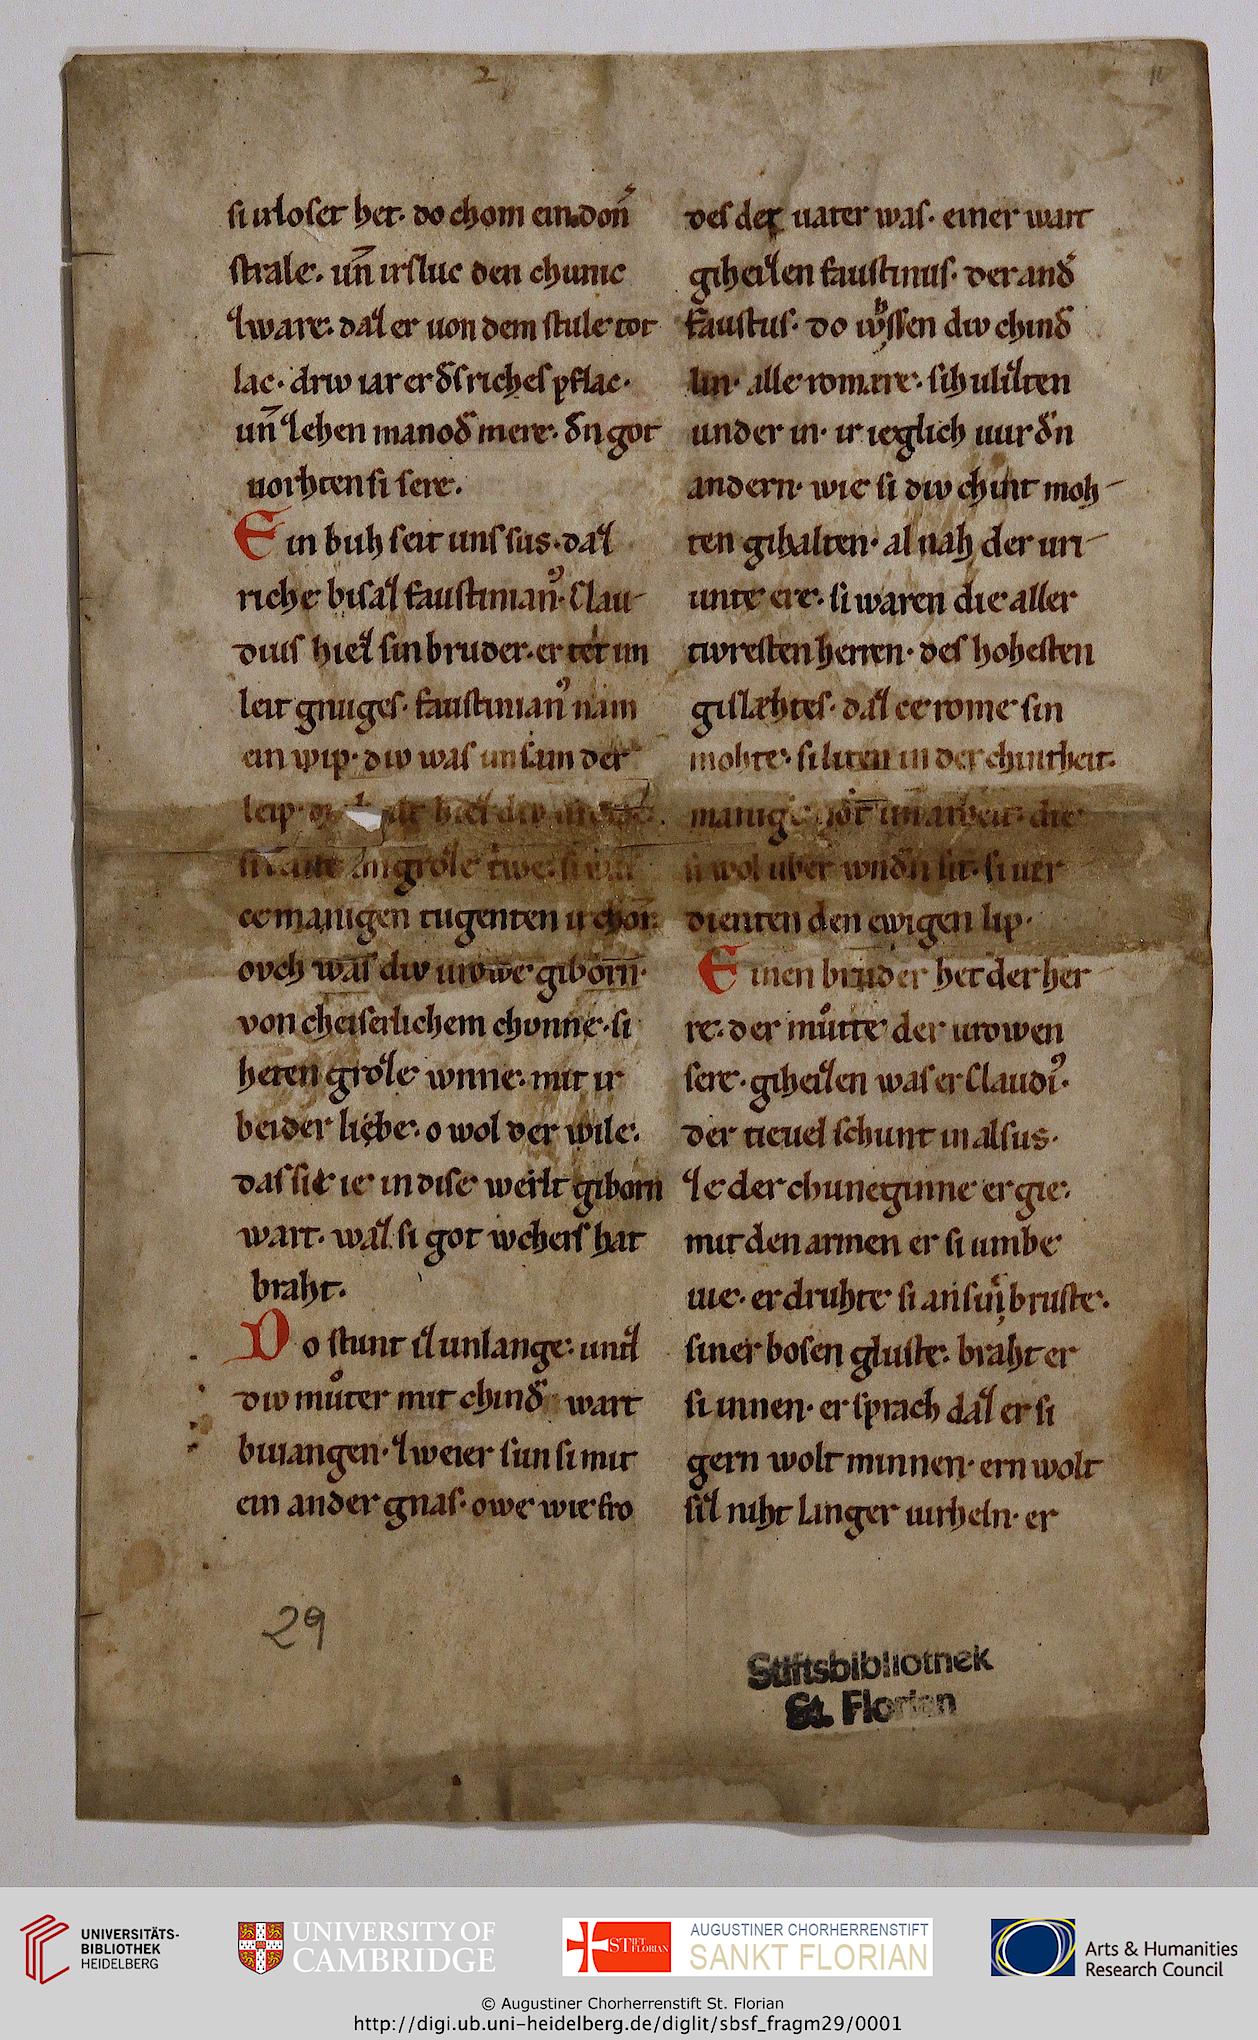 2
11
si irloset het. do chom ein don̄
strale. un̄ irsluc den chunic
zware. daz er uon dem stule tot
lac. driv iar er ds̄ riches pflac.
un̄ zehen manod mere. dn̄ got
uorhten si sere.
Ein buh seit uns sus. daz
riche bisaz faustinian᾿. Clau
dius hiez sin bruder. er tet im
leit gnuges. faustinian᾿ nam
ein wip. div was im sam der
leip. hiez div
groze triwe. si was
ce manigen tugenten ir chorn.
ovch was div urowe giborn.
von cheiserlichem chunne. si
heten groze wnne. mit ir
beider liebe. o wol der wile.
das sie ie in dise werlt giborn
wart. waz si got wchers hat
braht.
Do stunt iz unlange. untz
div muͦter mit chind wart
biuangen. zweier sun si mit
ein ander gnas. owe wie fro
des der uater was. einer wart
giheizen faustinus. der and
faustus. do whͦssen div chind
lin. alle romære. sih ulizten
under in. ir ieglich uur dn̄
andern. wie si div chint moh
ten gihalten. al nah der uri
unte ere. si waren die aller
tivresten herren. des hohesten
gislæhtes. daz ce rome sin
mohte. si liten in der chintheit.
manige not un̄ arbeit. die
si wol uber wndn̄ sit. si uer
dienten den ewigen lip.
Einen bruder het der her
re. der muͦtte der urowen
sere. giheizen was er Claudi᾿.
der tieuel schunt in alsus.
ze der chuneginne er gie.
mit den armen er si umbe
uie. er druhte si an sin bruste.
siner bosen gluste. braht er
si innen. er sprach daz er si
gern wolt minnen. ern wolt
siz niht langer uirheln. er
29
Stiftsbibliothek
St. Florian
UNIVERSITÄTS-
BIBLIOTHEK
HEIDELBERG
UNIVERSITY OF
CAMBRIDGE
STIFT
FLORIAN
AUGUSTINER CHORHERRENSTIFT
SANKT FLORIAN
Arts & Humanities
Research Council
© Augustiner Chorherrenstift St. Florian
http://digi.ub.uni-heidelberg.de/diglit/sbsf_fragm29/0001